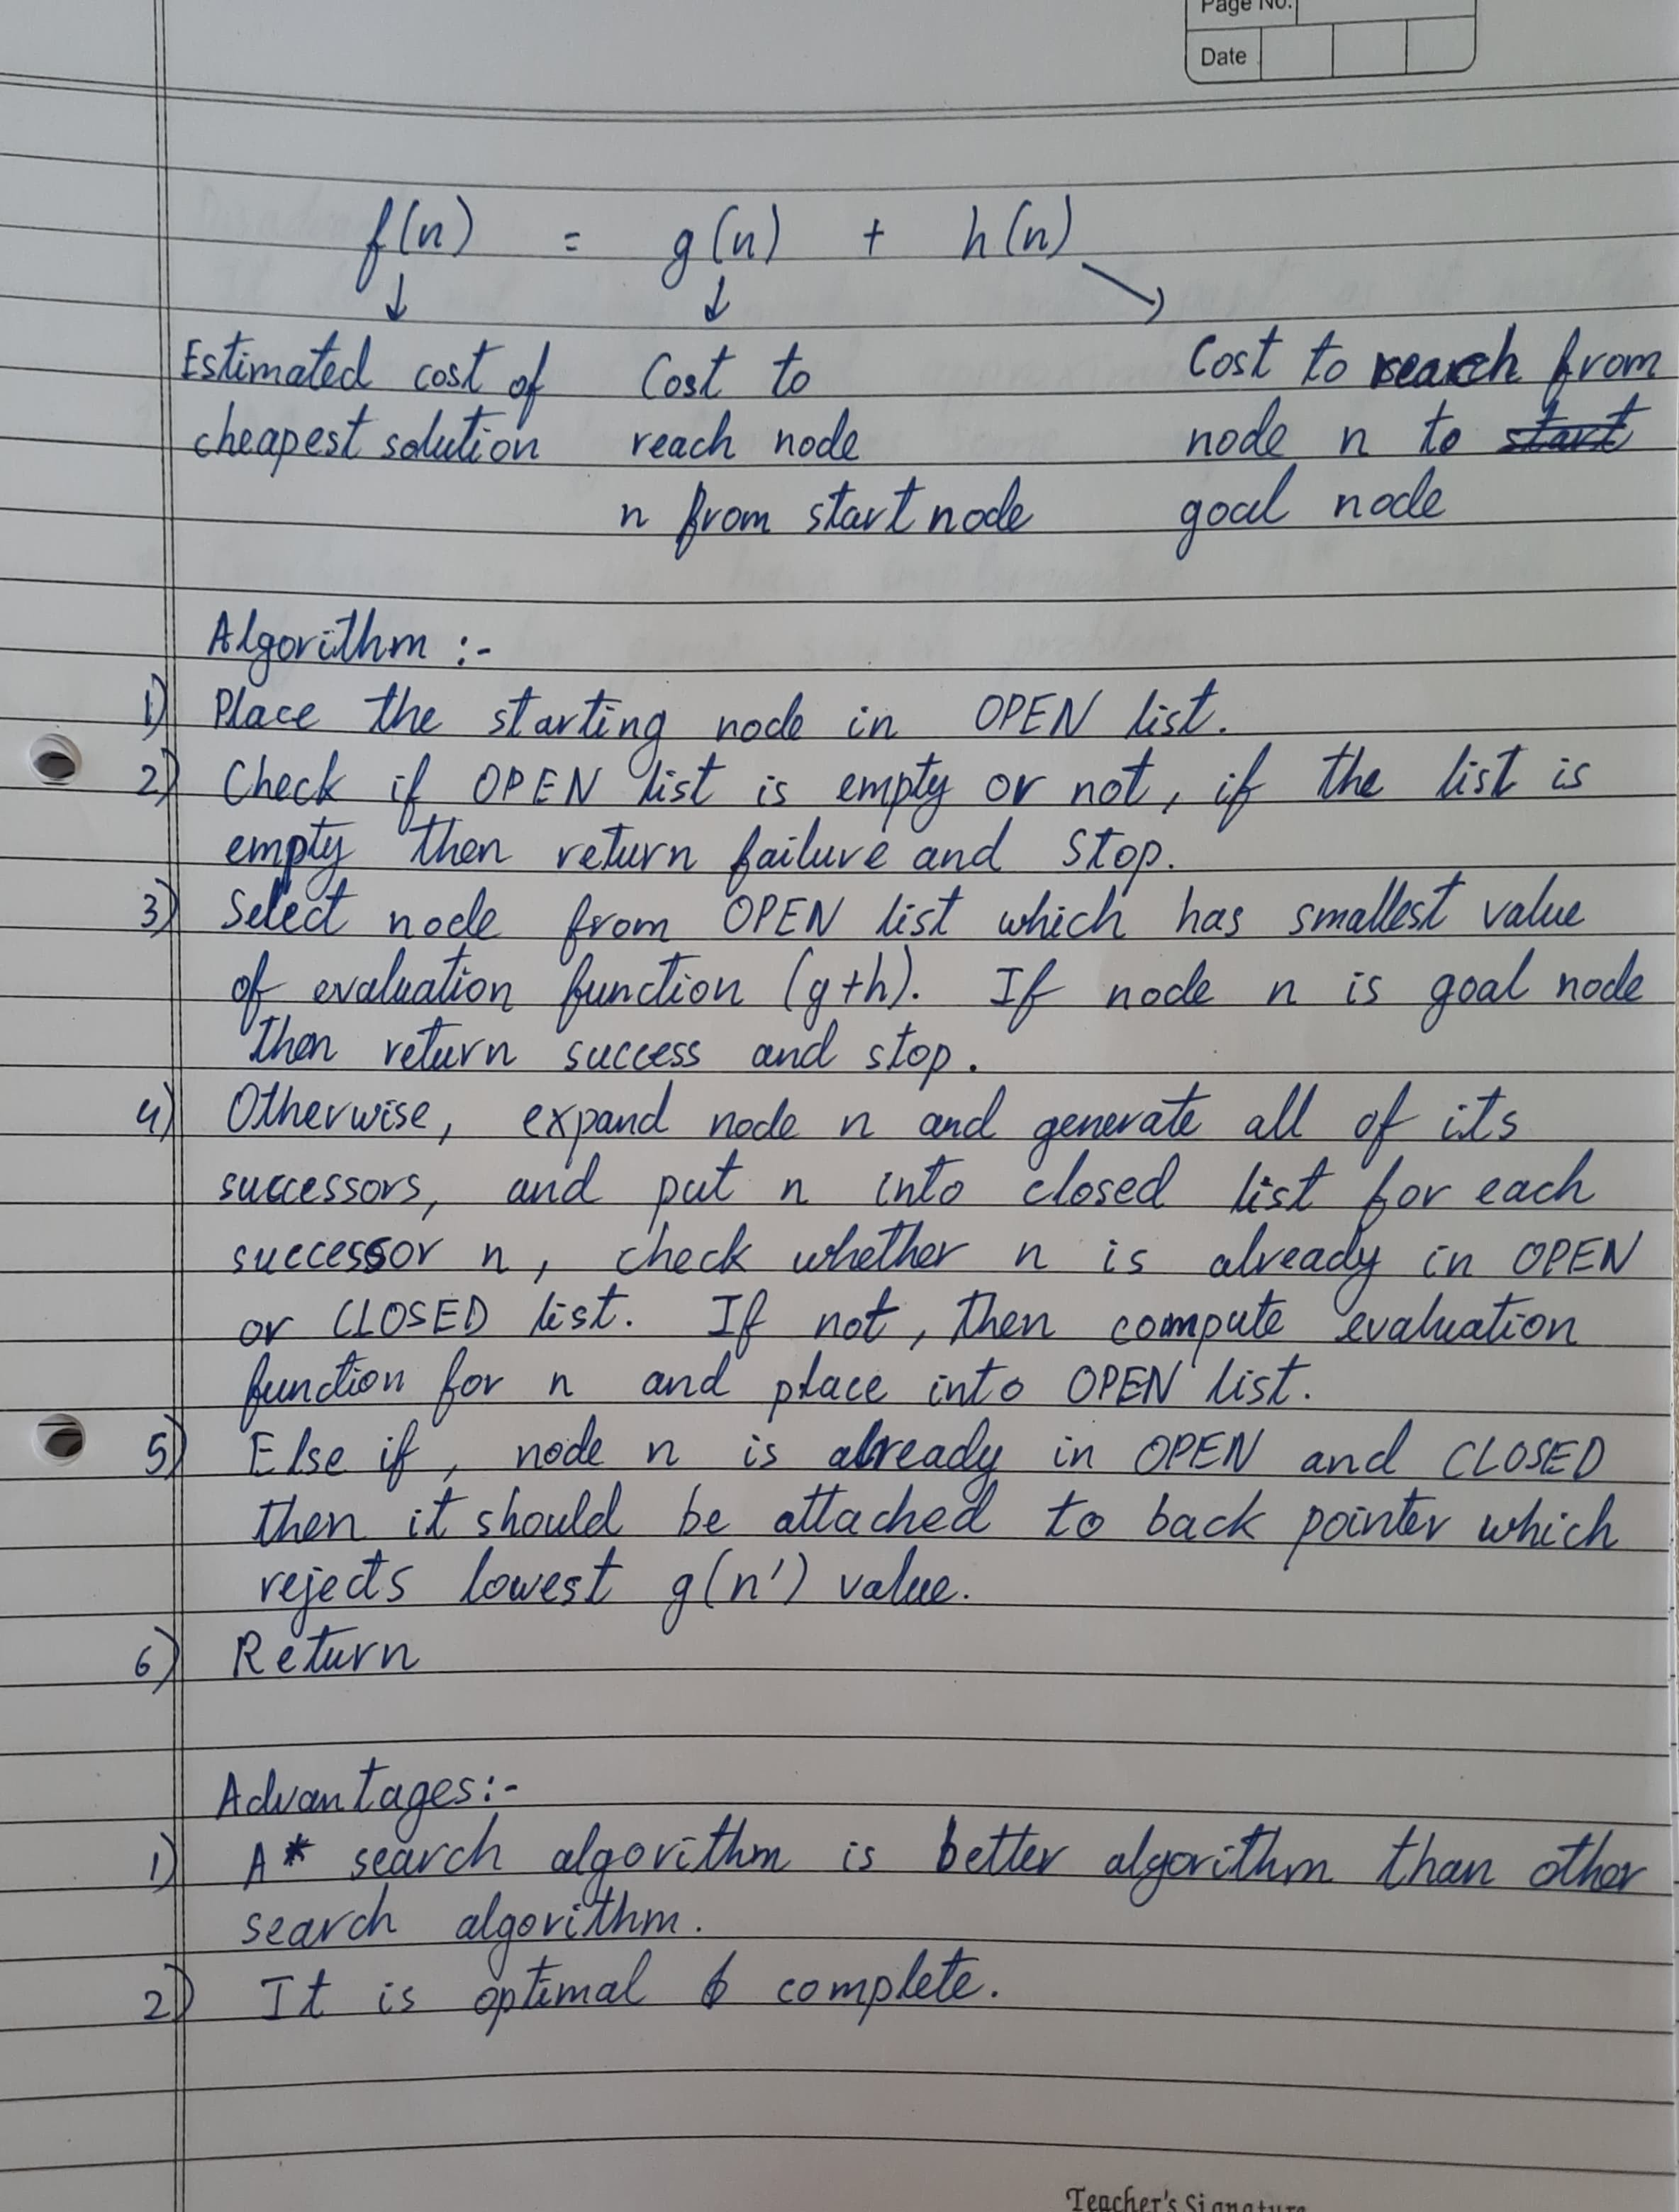 Page No.
Date
f(n) = g(n) + h(n)
Estimated cost of cheapest solution
Cost to reach node n from start node
Cost to reach from node n to start goal node
Algorithm :-
1) Place the starting node in OPEN list.
2) Check if OPEN list is empty or not, if the list is
empty then return failure and stop.
3) Select node from OPEN list which has smallest value
of evaluation function (g+h). If node n is goal node
then return success and stop.
4) Otherwise, expand node n and generate all of its
successors, and put n into closed list for each
successor n, check whether n is already in OPEN
or CLOSED list. If not, then compute evaluation
function for n and place into OPEN list.
5) Else if, node n is already in OPEN and CLOSED
then it should be attached to back pointer which
rejects lowest g(n') value.
6) Return
Advantages:-
1) A* search algorithm is better algorithm than other
search algorithm.
2) It is optimal & complete.
Teacher's Signature